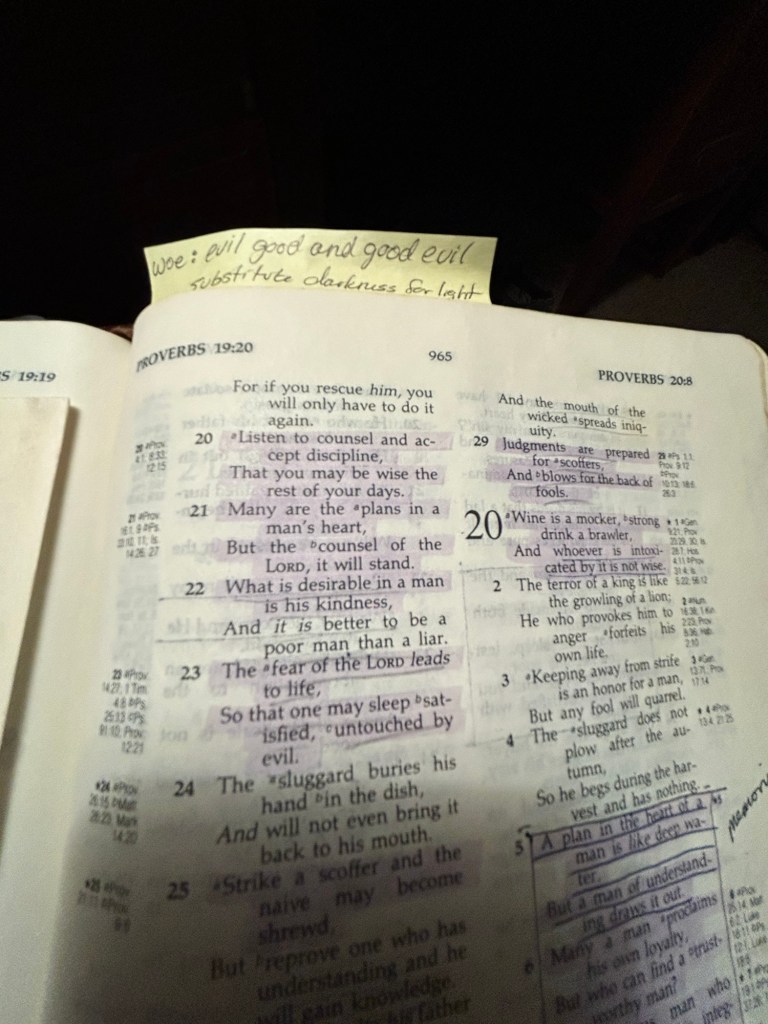 woe: evil good and good evil
substitute darkness for light
S 19:19
PROVERBS 19:20
965
PROVERBS 20:8
For if you rescue him, you
will only have to do it
again.
20 ᵃListen to counsel and ac-
cept discipline,
That you may be wise the
rest of your days.
21 Many are the ᵃplans in a
man's heart,
But the ᵇcounsel of the
LORD, it will stand.
22 What is desirable in a man
is his kindness,
And it is better to be a
poor man than a liar.
23 The ᵃfear of the LORD leads
to life,
So that one may sleep ᵇsat-
isfied, ᶜuntouched by
evil.
24 The ᵃsluggard buries his
hand ᵇin the dish,
And will not even bring it
back to his mouth.
25 ᵃStrike a scoffer and the
naive may become
shrewd,
But ᵇreprove one who has
understanding and he
will gain knowledge.
his father
And the mouth of the
wicked ᵃspreads iniq-
uity.
29 Judgments are prepared
for ᵃscoffers,
And ᵇblows for the back of
fools.
20 ᵃWine is a mocker, ᵇstrong
drink a brawler,
And whoever is intoxi-
cated by it is not wise.
2 The terror of a king is like
the growling of a lion;
He who provokes him to
anger ᵃforfeits his
own life.
3 ᵃKeeping away from strife
is an honor for a man,
But any fool will quarrel.
4 The ᵃsluggard does not
plow after the au-
tumn,
So he begs during the har-
vest and has nothing.
5 A plan in the heart of a
man is like deep wa-
ter,
But a man of understand-
ing draws it out.
6 Many a man ᵃproclaims
his own loyalty,
But who can find a ᵇtrust-
worthy man?
man who
integ-